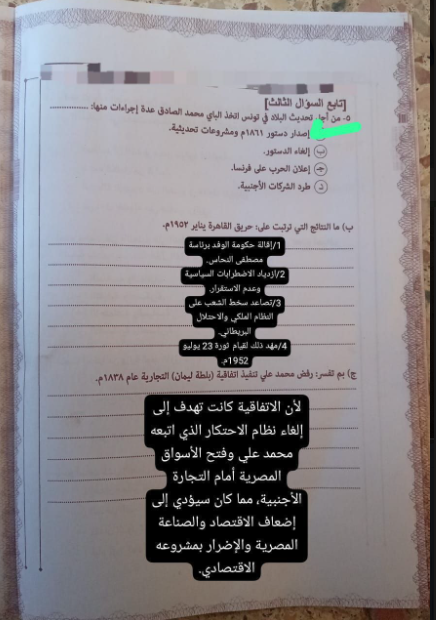 [تابع السؤال الثالث]
٥- من أجل تحديث البلاد في تونس اتخذ الباي محمد الصادق عدة إجراءات منها: ............
إصدار دستور ١٨٦١م ومشروعات تحديثية.
ب إلغاء الدستور.
جـ إعلان الحرب على فرنسا.
د طرد الشركات الأجنبية.
ب) ما النتائج التي ترتبت على: حريق القاهرة يناير ١٩٥٢م.
1/إقالة حكومة الوفد برئاسة
مصطفى النحاس.
2/ازدياد الاضطرابات السياسية
وعدم الاستقرار.
3/تصاعد سخط الشعب على
النظام الملكي والاحتلال
البريطاني.
4/مهد ذلك لقيام ثورة 23 يوليو
1952م.
ج) بم تفسر: رفض محمد علي تنفيذ اتفاقية (بلطة ليمان) التجارية عام ١٨٣٨م.
لأن الاتفاقية كانت تهدف إلى
إلغاء نظام الاحتكار الذي اتبعه
محمد علي وفتح الأسواق
المصرية أمام التجارة
الأجنبية، مما كان سيؤدي إلى
إضعاف الاقتصاد والصناعة
المصرية والإضرار بمشروعه
الاقتصادي.